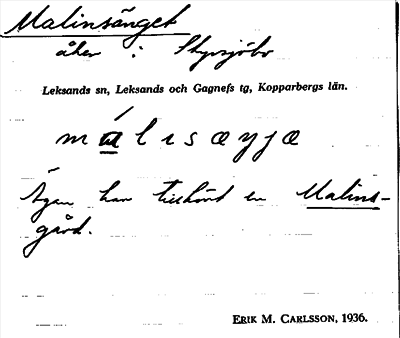 Malinsänget
åker i Styrsjöbo
Leksands sn, Leksands och Gagnefs tg, Kopparbergs län.
málısæŋjæ
Ägan har tillhört en Malins-
gård.
ERIK M. CARLSSON, 1936.